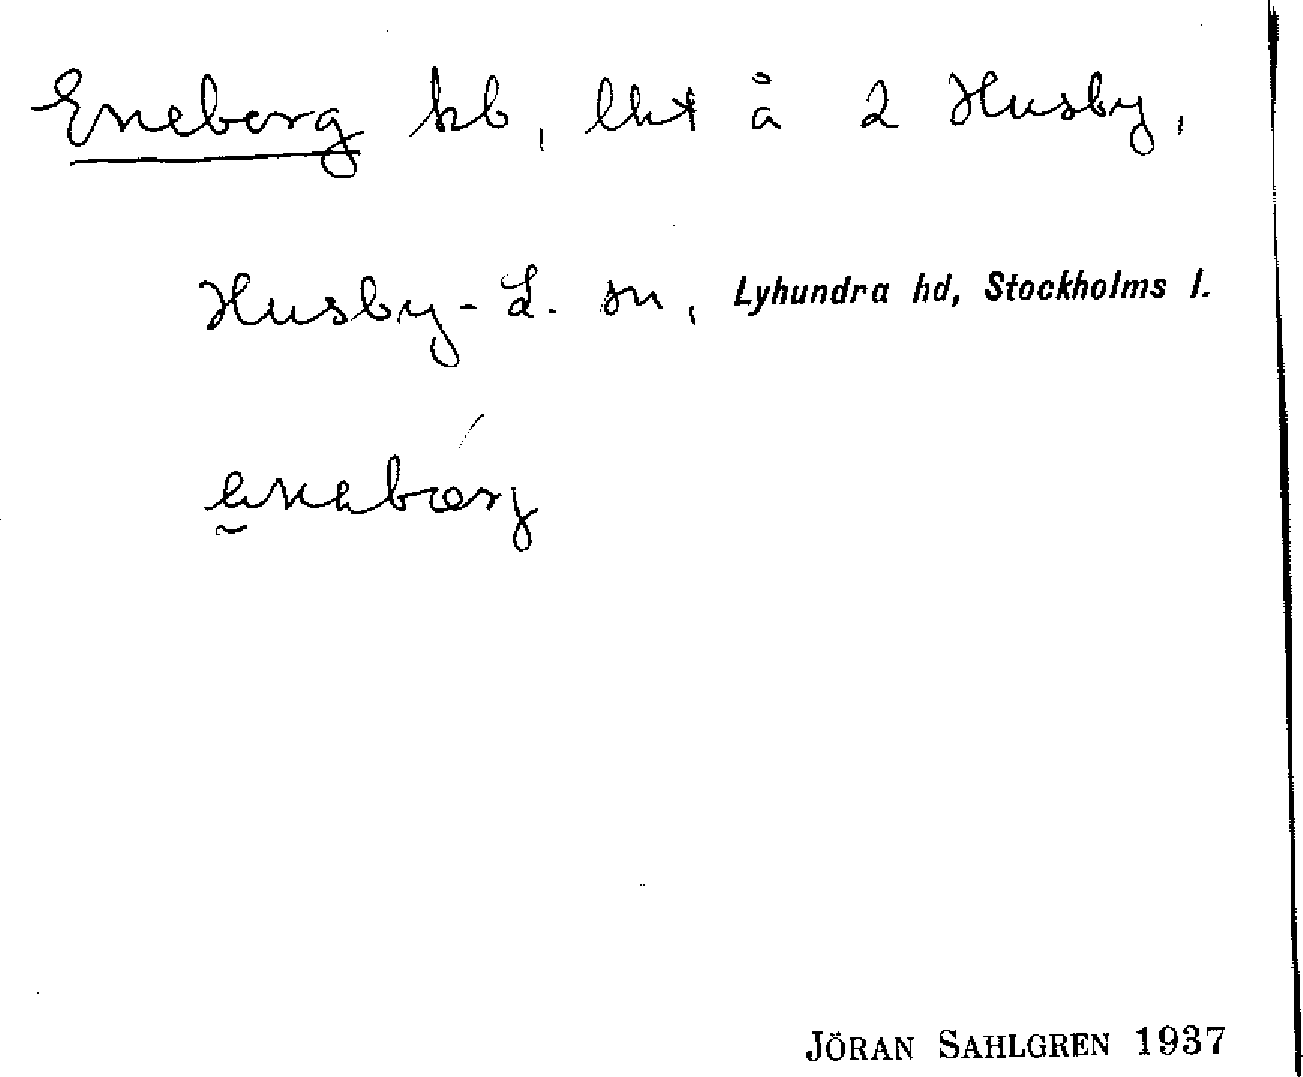 Eneborg kb, lht å 2 Husby,
Husby-L. sn, Lyhundra hd, Stockholms l.
JÖRAN SAHLGREN 1937